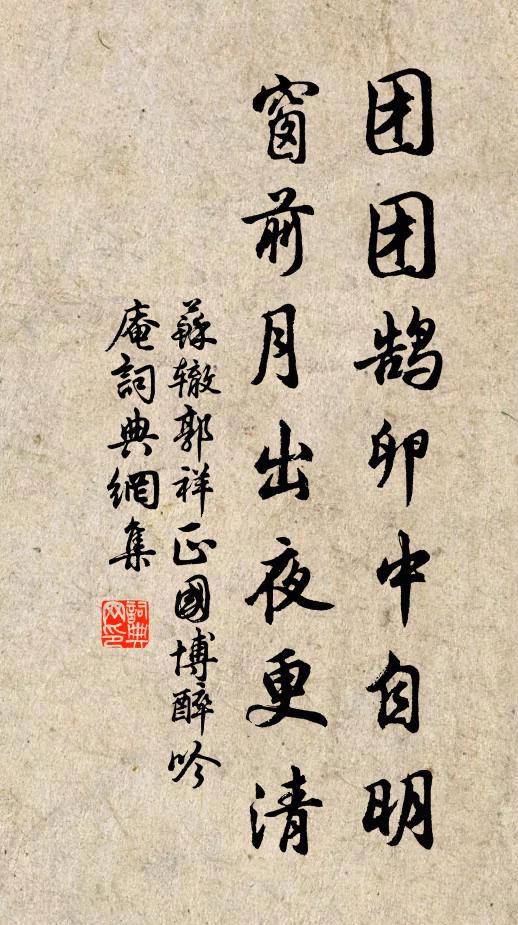 团团鹄卵中自明
窗前月出夜更清
蘇辙郭祥正國博醉吟
庵詞典網集
詞典
网印